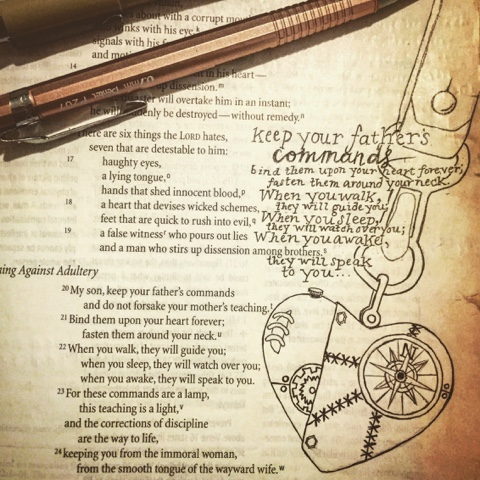 about with a corrupt
winks with his eye,
signals with his
and
14
in his heart—
up dissension.ᵐ
will overtake him in an instant;
he will suddenly be destroyed—without remedy.ⁿ
There are six things the LORD hates,
seven that are detestable to him:
17 haughty eyes,
a lying tongue,ᵒ
hands that shed innocent blood,ᵖ
18 a heart that devises wicked schemes,
feet that are quick to rush into evil,ᵠ
19 a false witnessʳ who pours out lies
and a man who stirs up dissension among brothers.ˢ
Keep your father's
commands
bind them upon your heart forever;
fasten them around your neck.
When you walk,
they will guide you;
When you sleep,
they will watch over you;
When you awake,
they will speak
to you...
ing Against Adultery
20 My son, keep your father's commands
and do not forsake your mother's teaching.ᵗ
21 Bind them upon your heart forever;
fasten them around your neck.ᵘ
22 When you walk, they will guide you;
when you sleep, they will watch over you;
when you awake, they will speak to you.
23 For these commands are a lamp,
this teaching is a light,ᵛ
and the corrections of discipline
are the way to life,
24 keeping you from the immoral woman,
from the smooth tongue of the wayward wife.ʷ
0.7mm Pentel P207